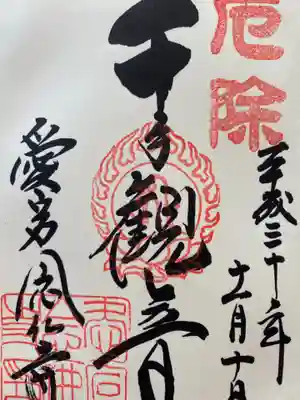 厄除
平成三十年
十一月十日
千手觀音
愛宕念仏寺